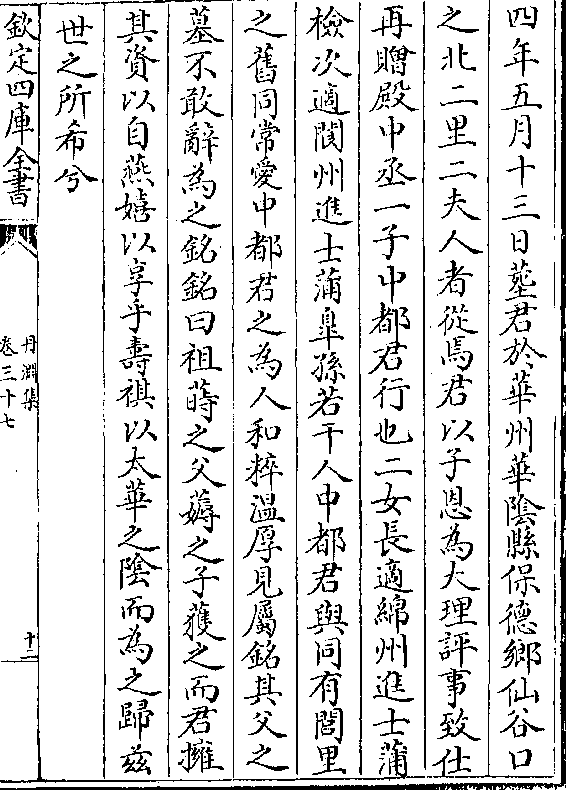 四年五月十三日塟君於華州華隂縣保德鄉仙谷口
之北二里二夫人者從焉君以子恩為大理評事致仕
再贈殿中丞一子中都君行也二女長適綿州進士蒲
檢次適閬州進士蒲臯孫若干人中都君與同有閭里
之舊同常愛中都君之為人和粹溫厚見屬銘其父之
墓不敢辭為之銘銘曰祖蒔之父薅之子穫之而君擁
其資以自燕嬉以享乎壽祺以太華之隂而為之歸兹
世之所希兮
欽定四庫全書
丹淵集
卷三十七
十二